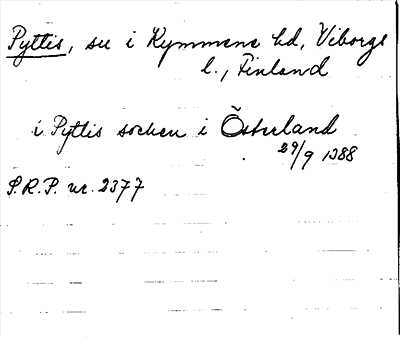 Pyttis, sn i Kymmene hd, Viborgs
l., Finland
i Pyttis socken i Österland
29/9 1388
S.R.P. nr. 2377